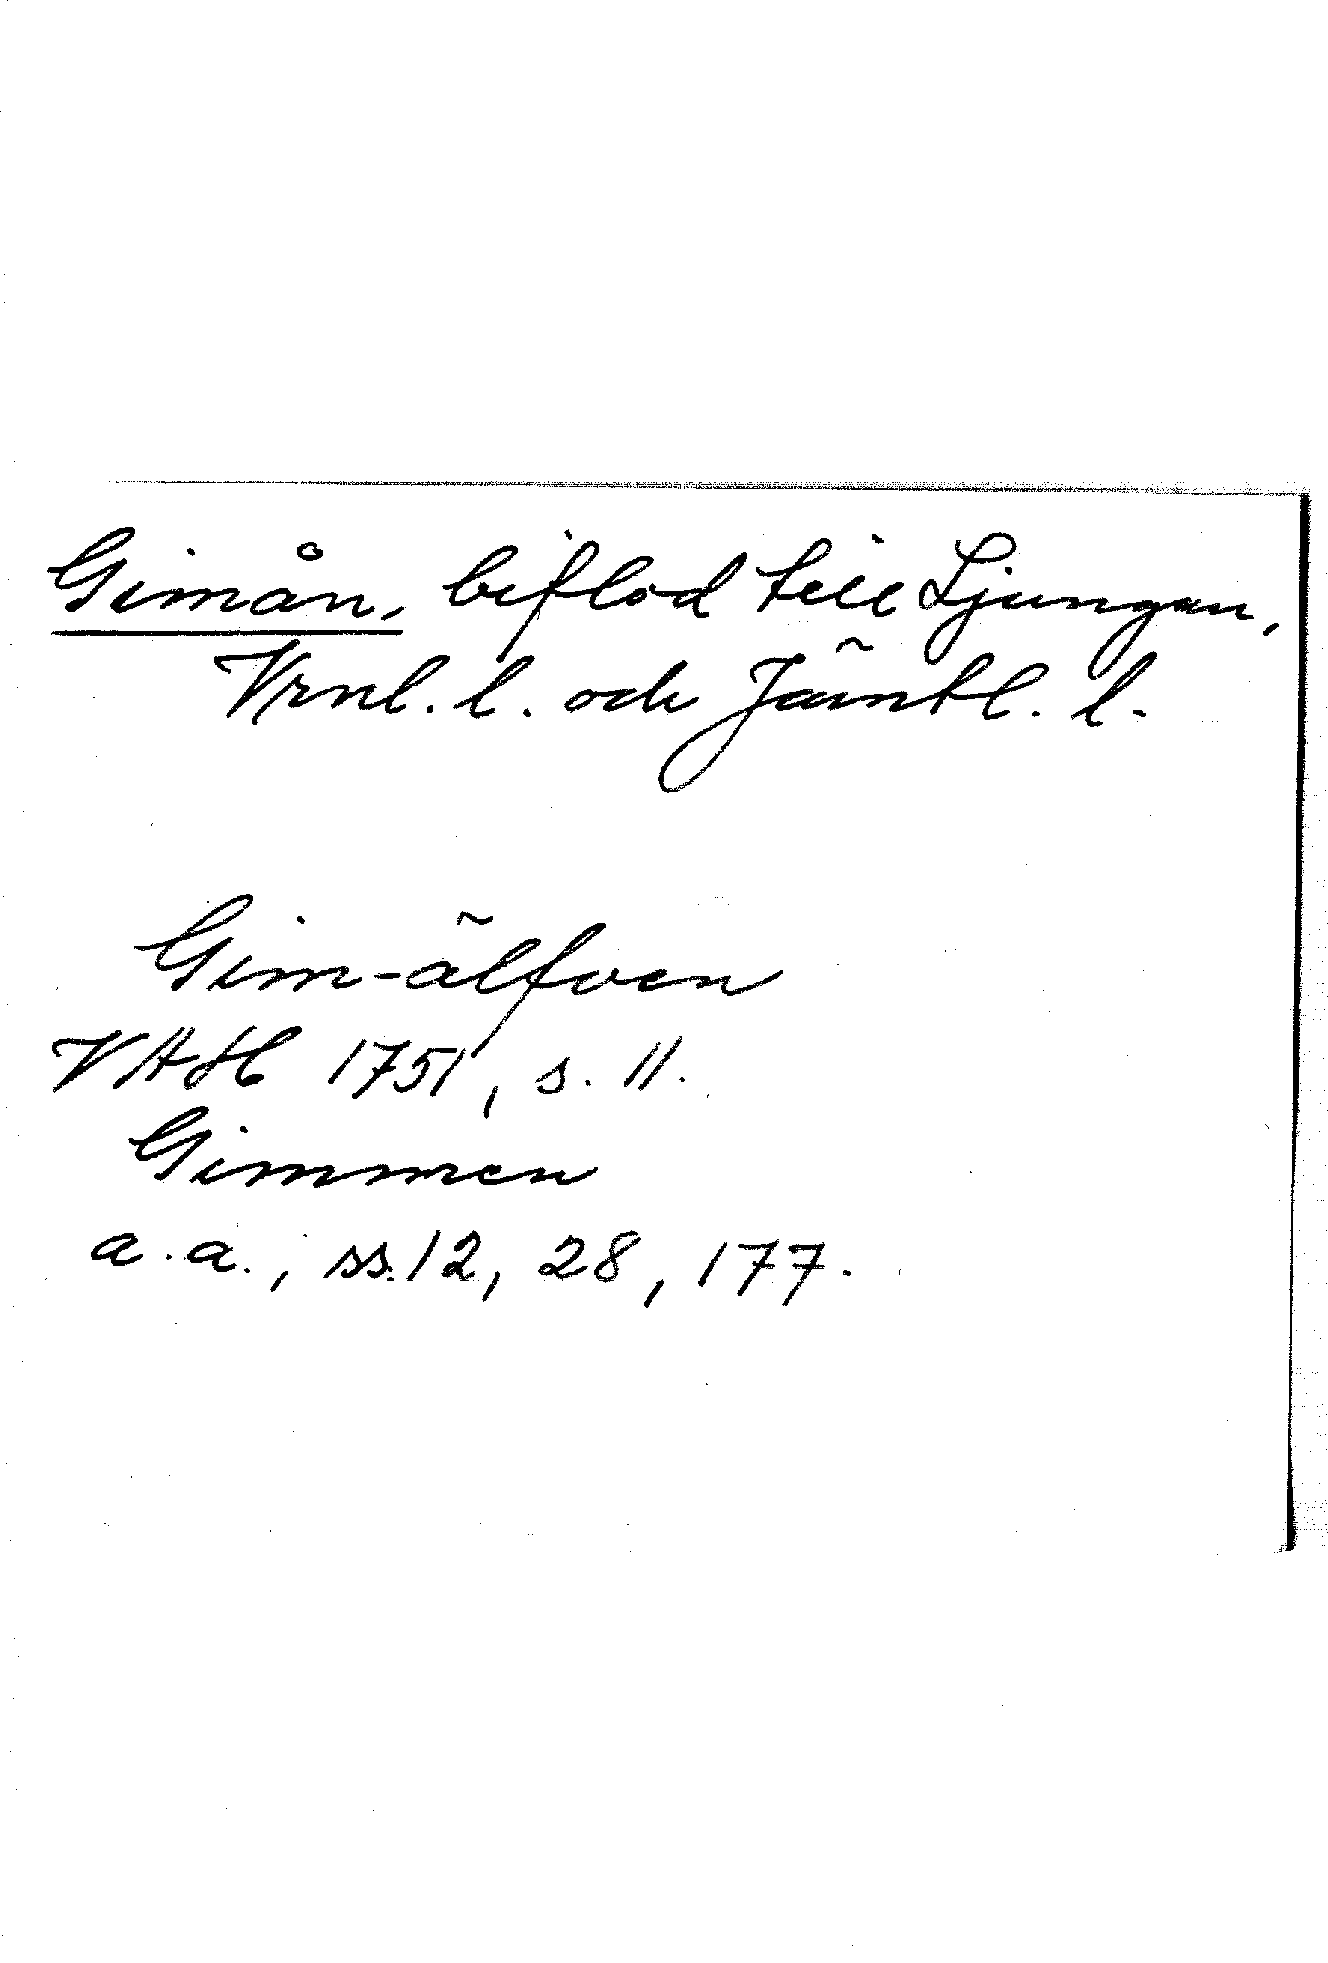 Gimån, biflod till Ljungan,
Vrnl. l. och Jämtl. l.
Gim-älfven
VAH 1751, s. 11.
Gimmen
a.a., ss. 12, 28, 177.